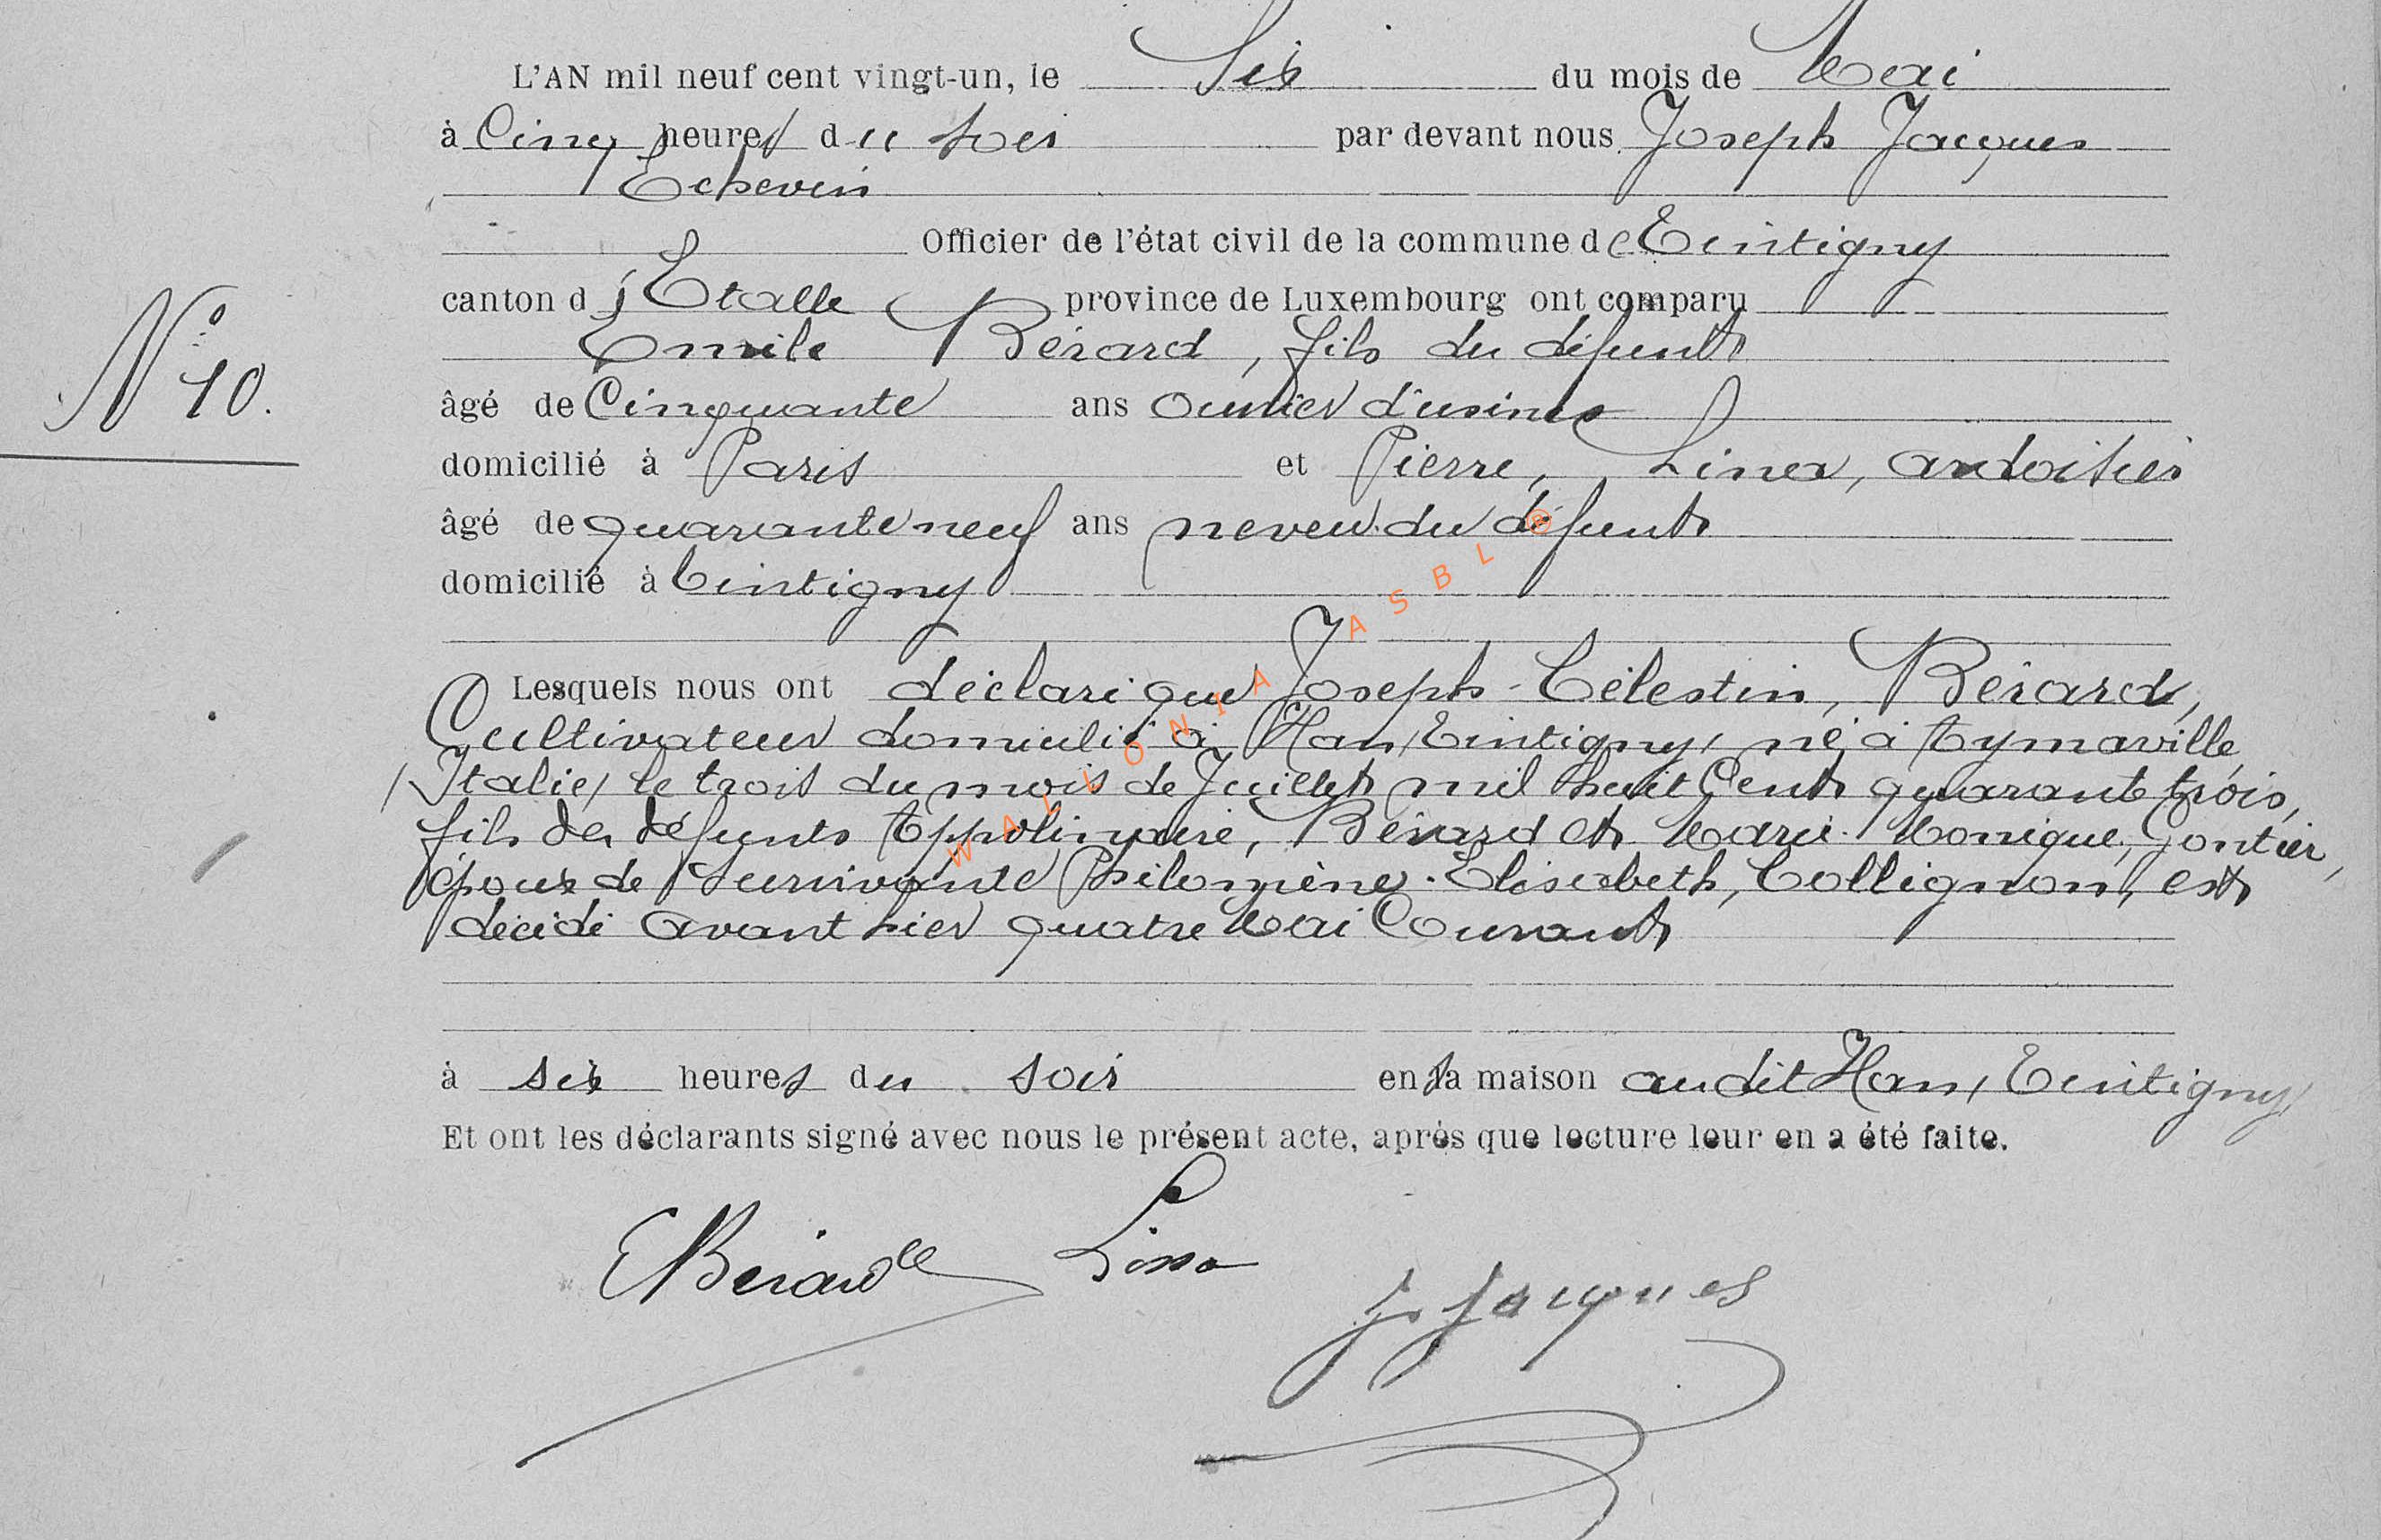 L'AN mil neuf cent vingt-un, le Six du mois de Mai
à Cinq heures du soir par devant nous Joseph Jacques
Echevin
Officier de l'état civil de la commune de Tintigny
canton d'Etalle province de Luxembourg ont comparu
N° 10.
Emile Bérard, fils du défunt
âgé de Cinquante ans ouvrier d'usines
domicilié à Paris et Pierre, Lina, ardoisier
âgé de quarante neuf ans neveu du défunt
domicilié à Tintigny
Lesquels nous ont déclaré que Joseph-Célestin, Bérard,
Cultivateur domicilié à Han /Tintigny/ né à Aymaville
/Italie/ le trois du mois de Juillet mil huit Cent quarante trois,
fils des défunts Appolinaire, Bérard et Marie-Monique, Gontier,
époux de survivante Philomène-Elisabeth, Collignon, est
décédé avant hier quatre Mai Courant
à six heures du soir en sa maison audit Han /Tintigny/
Et ont les déclarants signé avec nous le présent acte, après que lecture leur en a été faite.
EBérard Lina
J. Jacques
WALLONIA ASBL ®